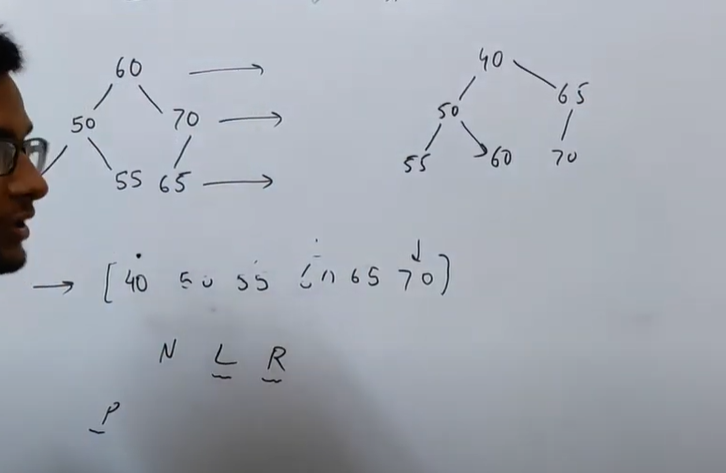 60
50 70
55 65
40
50 65
55 60 70
[40 50 55 60 65 70]
N L R
P